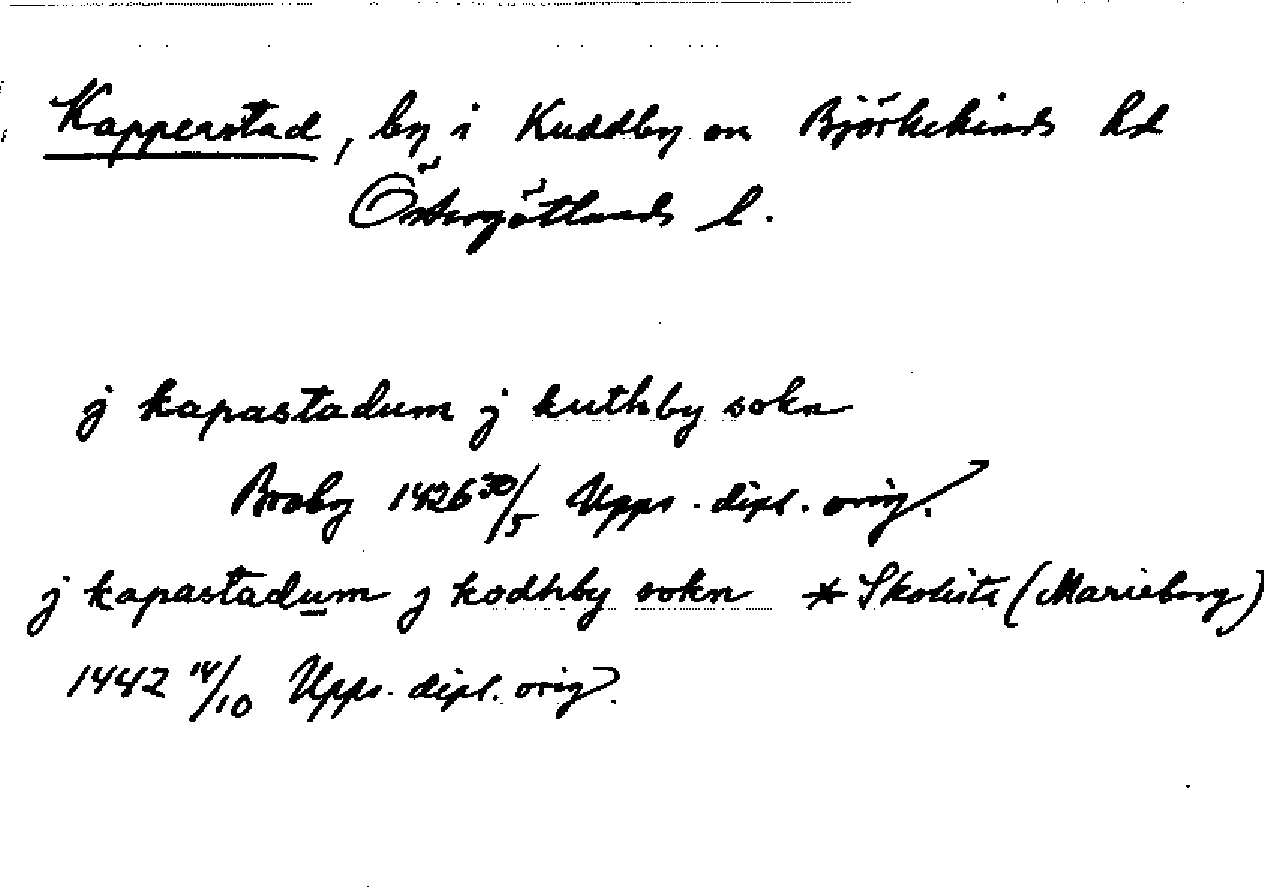 Kapperstad, by i Kuddby sn Björkekinds hd
Östergötlands l.
j kapastadum j kuthby sokn
Broby 1426 30/5 Upps. dipl. orig.
j kapastadum j kodhby sokn * Skolista (Marieborg)
1442 14/10 Upps. dipl. orig.